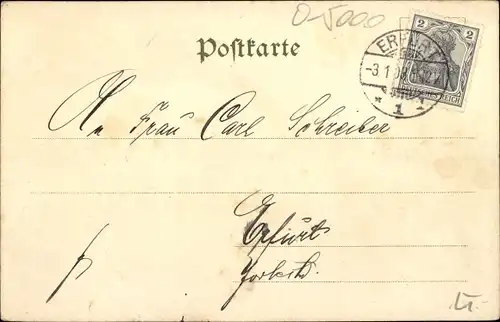 0-5000
Postkarte
2 2
ERFURT
-3.1.
* 1
DEUTSCHES REICH
An Frau Carl Schreiber
Erfurt